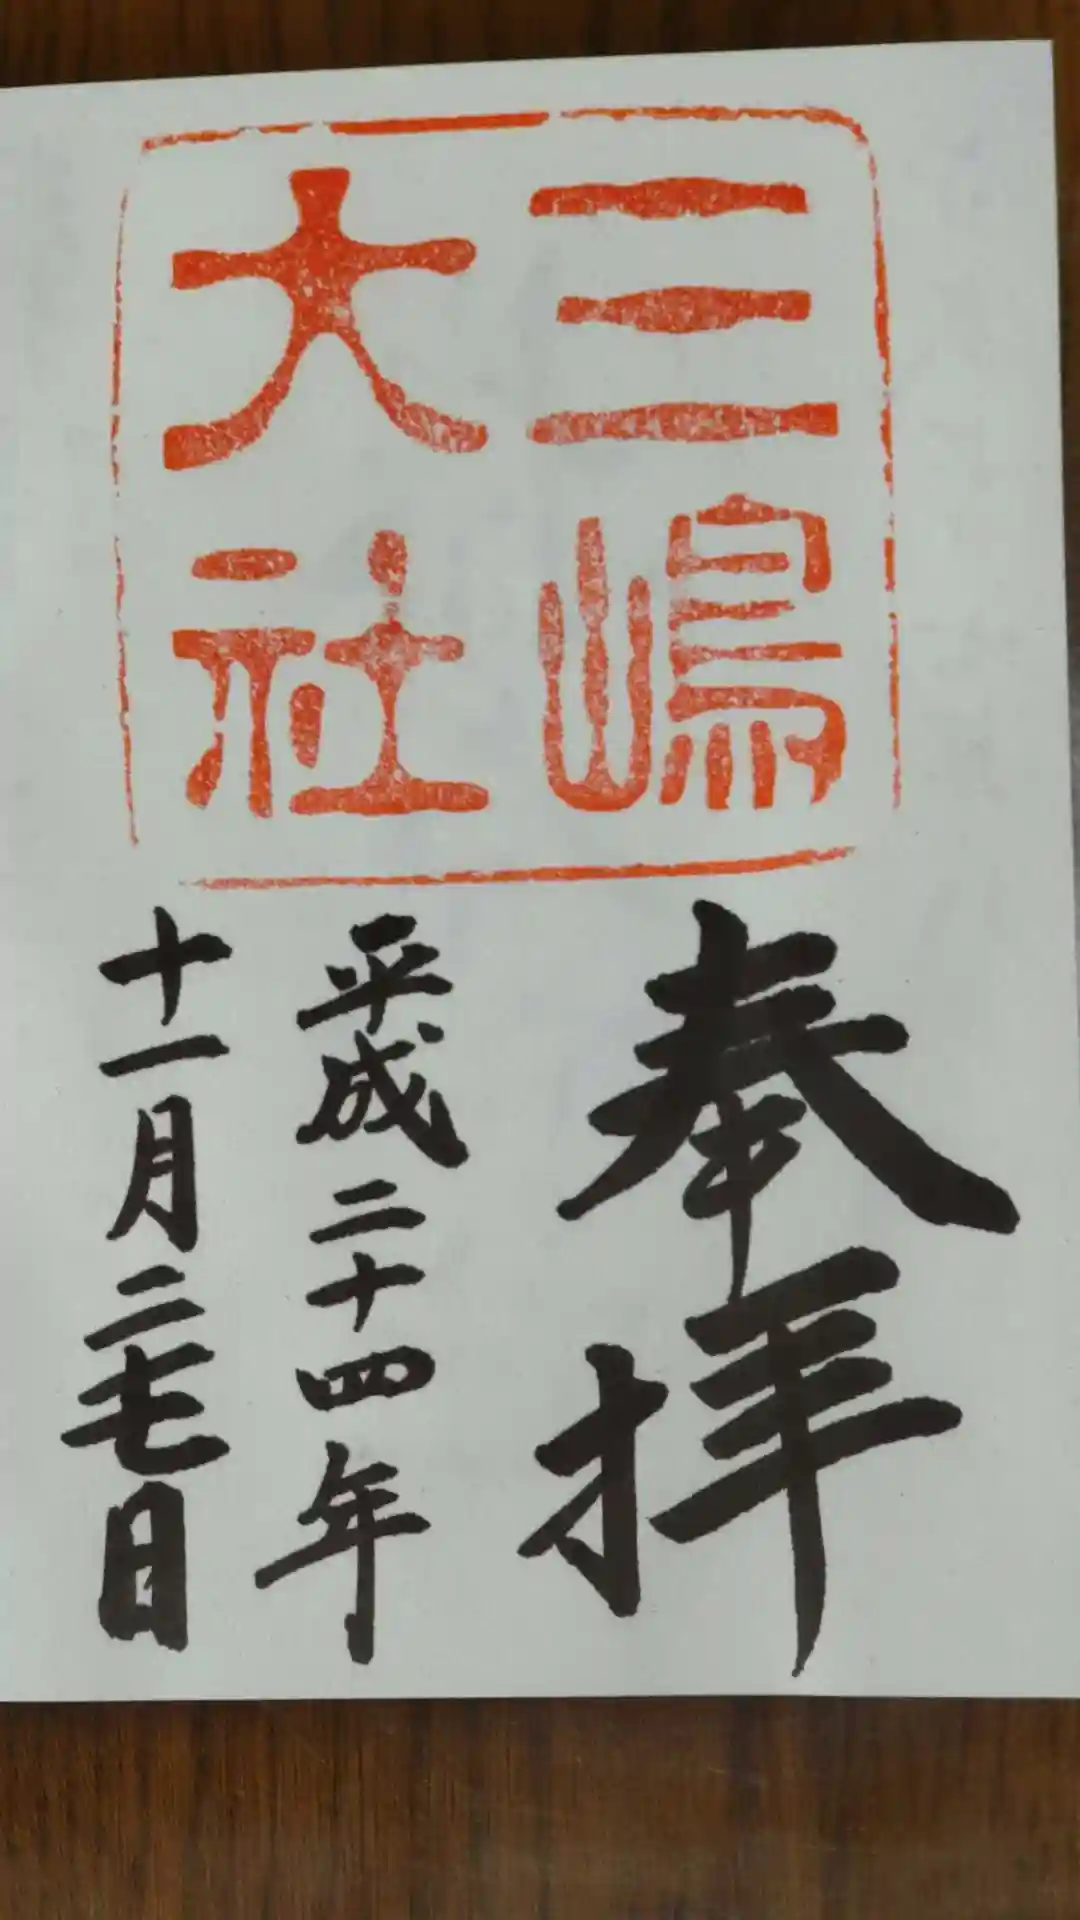 三嶋
大社
奉拝
平成二十四年
十一月二十七日